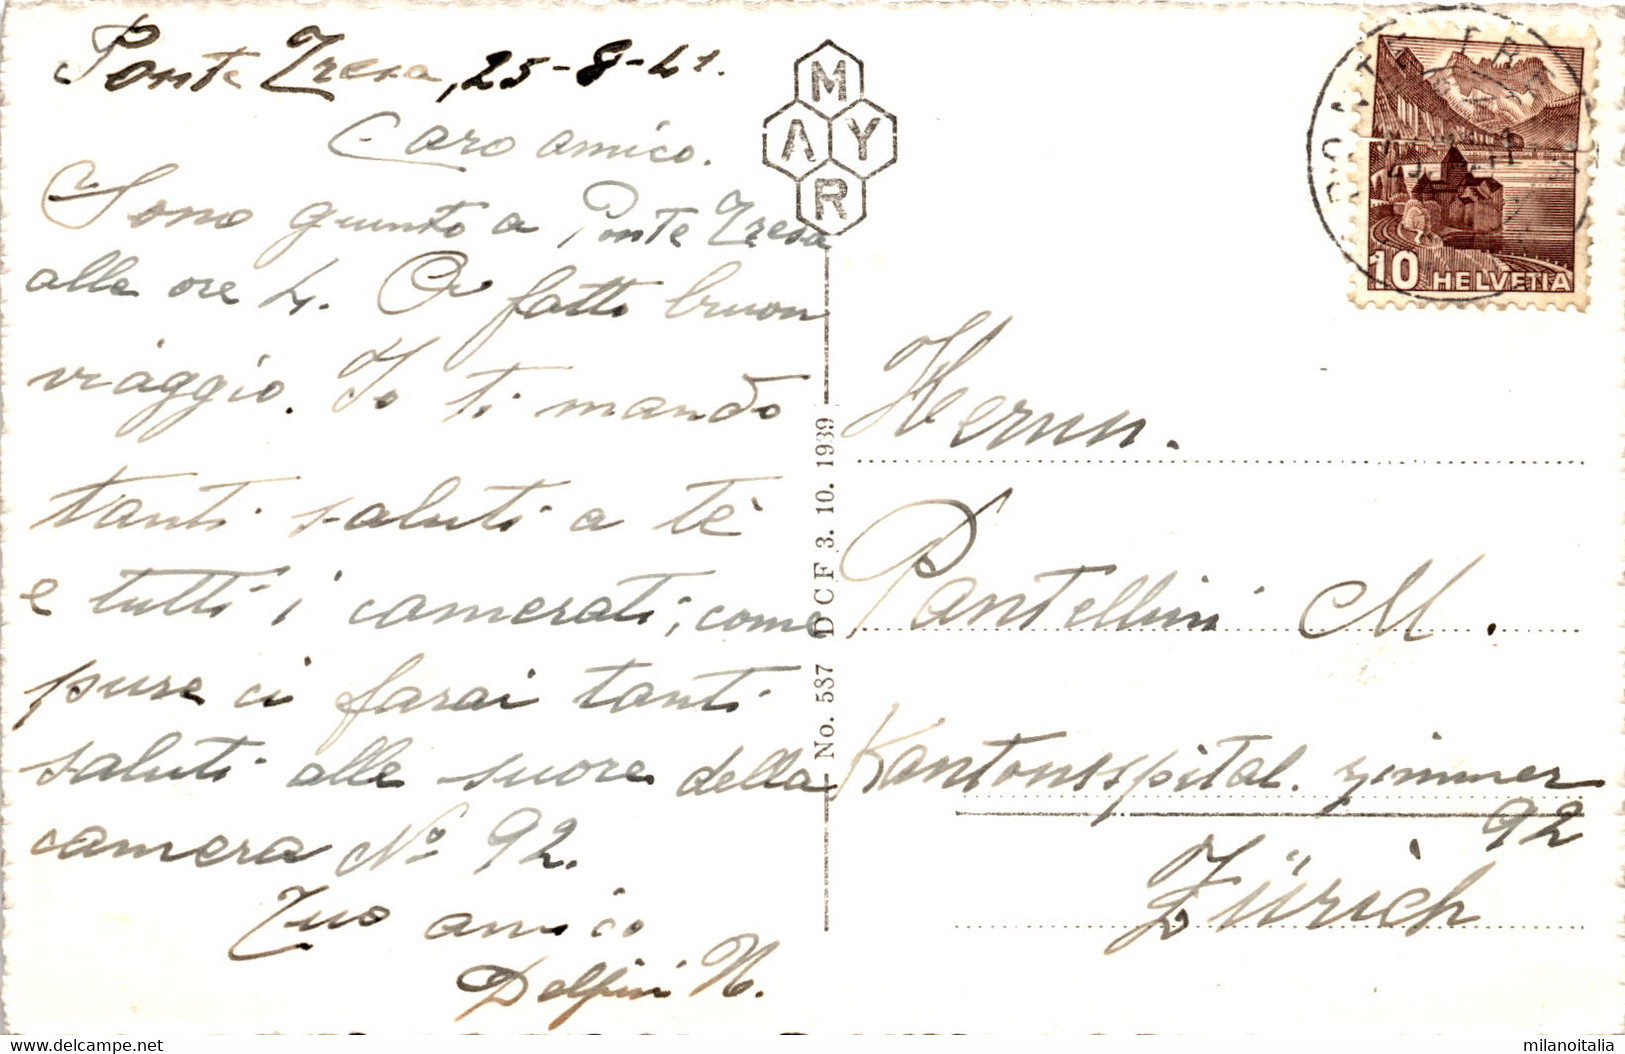 Ponte Tresa, 25-8-41.
Caro amico.
Sono giunto a Ponte Tresa
alle ore 4. O fatto buon
viaggio. Io ti mando
tanti saluti a tè
e tutti i camerati, come
pure ci farai tanti
saluti alle suore della
camera No 92.
Tuo amico
Delfini N.
MAYR
No. 587 D C F 3. 10. 1939
PONTE TRESA
10 HELVETIA
Herrn.
Pantellini M.
Kantonsspital. zimmer
92
Zürich
delcampe.net
milanoitalia